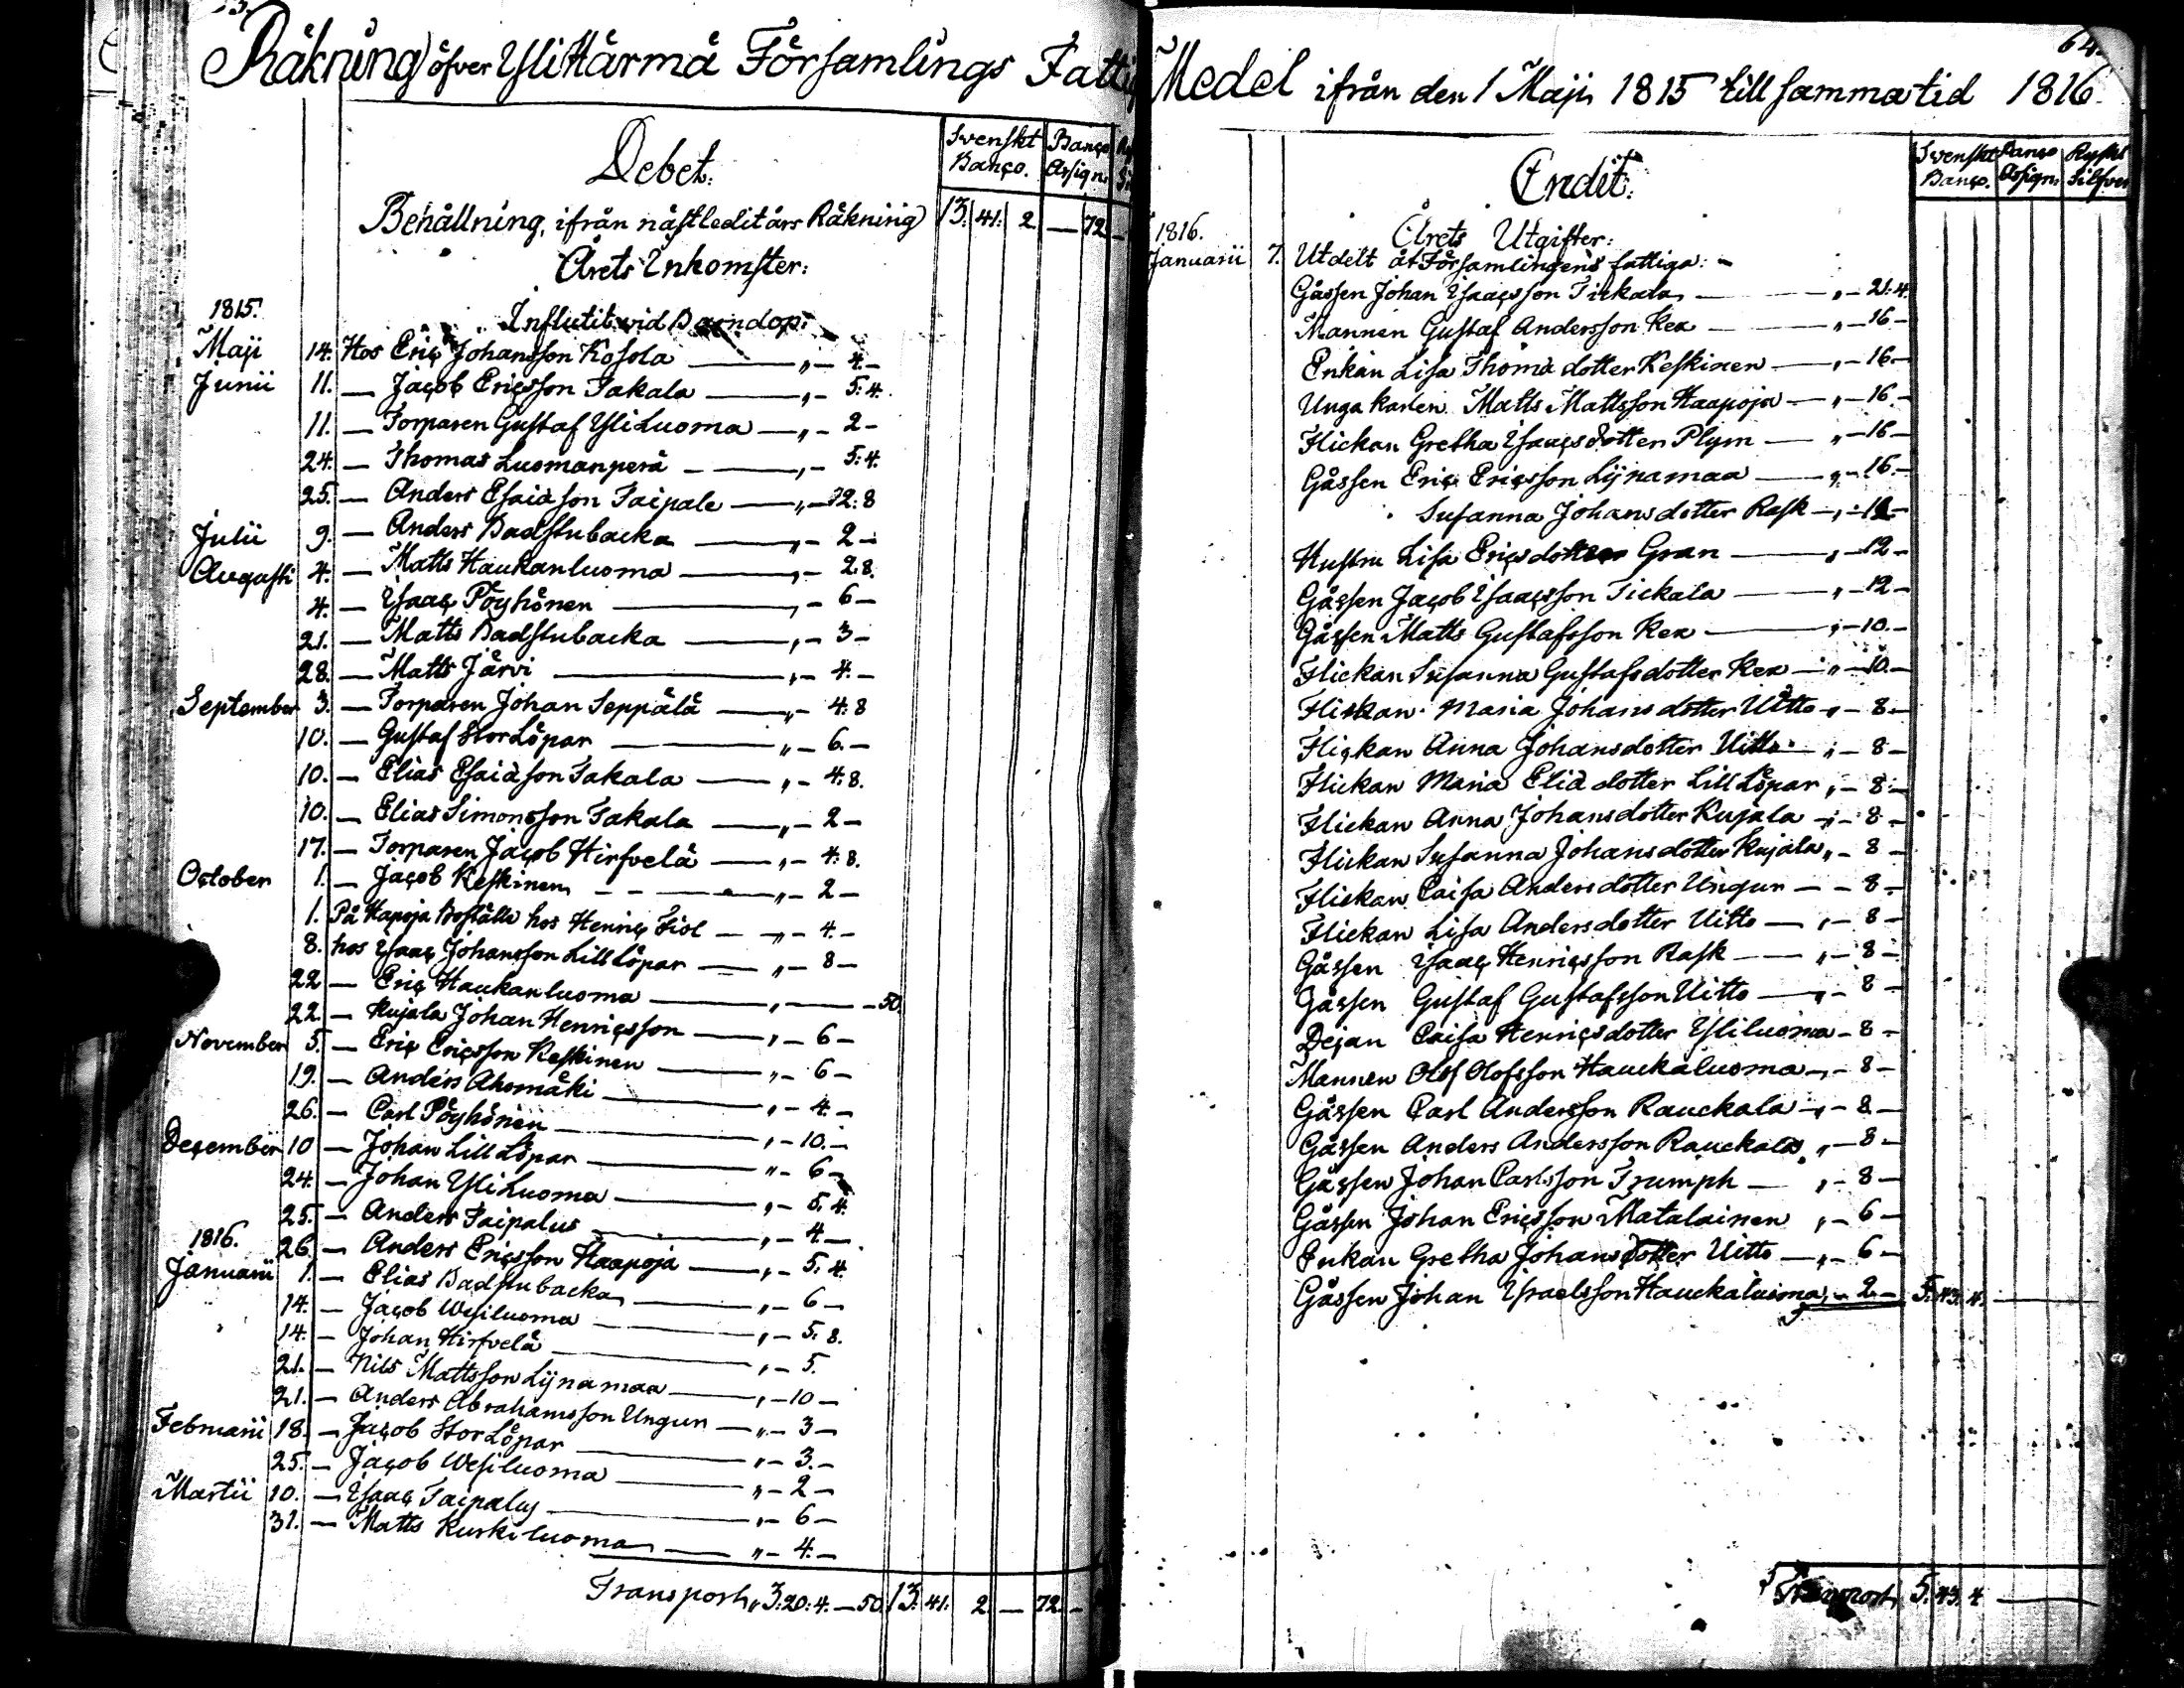 Räkning öfver YliHärmä Församlings Fattig
Debet.
Svenskt Banco.
Banco Assign.
Behållning, ifrån nästledit års Räkning 13. 41. 2. — 72. —
Årets Inkomster:
1815.
Influtit vid Barndop:
Maji 14. Hos Eriç Johansson Kosola — „ — 4. —
Junii 11. — Jaçob Ericsson Takala — „ — 5. 4.
11. — Torparen Gustaf YliLuoma — „ — 2 —
24. — Thomas Luomanperä — „ — 5. 4.
25. — Anders Esaiason Taipale — „ — 12. 8
Julii 9. — Anders Badstubacka — „ — 2 —
Augusti 4. — Matts Haukanluoma — „ — 2. 8.
4. — Ysaaç Pöyhönen — „ — 6 —
21. — Matts Badstubacka — „ — 3 —
28. — Matts Järvi — „ — 4. —
September 3. — Torparen Johan Seppälä — „ — 4. 8
10. — Gustaf StorLöpar — „ — 6. —
10. — Elias Esaiason Takala — „ — 4. 8.
10. — Elias Simonsson Takala — „ — 2 —
17. — Torparen Jaçob Hirfvelä — „ — 4. 8.
October 1. — Jaçob Keskinen — „ — 2 —
1. På Hapoja Boställe hos Henriç Fiol — „ — 4. —
8. hos Ysaaç Johansson LillLöpar — „ — 8 —
22 — Eriç Haukanluoma — „ — 50.
22. — Kujala Johan Henriçsson — „ — 6 —
November 5. — Eriç Eriçsson Keskinen — „ — 6 —
19. — Anders Ahomäki — „ — 4 —
26. — Carl Pöyhönen — „ — 10. —
Deçember 10 — Johan LillLöpar — „ — 6 —
24. — Johan YliLuoma — „ — 5. 4.
25. — Anders Taipalus — „ — 4 —
26. — Anders Eriçsson Haapoja — „ — 5. 4.
1816.
Januarii 1. — Elias Badstubacka — „ — 6 —
14. — Jaçob Wesiluoma — „ — 5. 8.
14. — Johan Hirfvelä — „ — 5.
21. — Nils Mattsson Lijnamaa — „ — 10 —
21. — Anders Abrahamsson Ungur — „ — 3 —
Februarii 18. — Jaçob StorLöpar — „ — 3. —
25. — Jaçob Wesiluoma — „ — 2 —
Martii 10. — Ysaaç Taipalus — „ — 6 —
31. — Matts Kurkiluoma — „ — 4. —
Transport „ 3. 20. 4. — 50. 13. 41. 2. — 72. —
64.
Medel ifrån den 1 Maji 1815 till samma tid 1816.
Credit:
Svenskt Banco.
Banco Assign.
Ryskt Silfver
1816.
Årets Utgifter:
Januarii 7. Utdelt åt Församlingens fattiga: —
Gåssen Johan Ysaaçsson Tickala — „ — 21. 4.
Mannen Gustaf Andersson Rex — „ — 16 —
Enkan Lisa Thomadotter Keskinen — „ — 16 —
Unga karlen Matts Mattsson Haapoja — „ — 16 —
Flickan Gretha Ysaaçsdotter Plym — „ — 16 —
Gåssen Eriç Eriçsson Lijnamaa — „ — 16. —
Susanna Johansdotter Rask — „ — 12 —
Hustru Lisa Eriçsdotter Gran — „ — 12 —
Gåssen Jaçob Ysaaçsson Tickala — „ — 12 —
Gåssen Matts Gustafsson Rex — „ — 10. —
Flickan Susanna Gustafsdotter Rex — „ — 10. —
Flickan Maria Johansdotter Uitto „ — 8 —
Fliçkan Anna Johansdotter Uitto — „ — 8 —
Flickan Maria Eliadotter LillLöpar „ — 8 —
Flickan Anna Johansdotter Kujala — „ — 8 —
Flickan Susanna Johansdotter Kujala „ — 8 —
Flickan Caisa Andersdotter Ungur — — 8 —
Flickan Lisa Andersdotter Uitto — „ — 8 —
Gåssen Ysaaç Henriçsson Rask — „ — 8 —
Gåssen Gustaf Gustafsson Uitto — „ — 8 —
Dejan Caisa Henriçsdotter Yliluoma — 8 —
Mannen Olof Olofsson Hauckaluoma — „ — 8 —
Gåssen Carl Andersson Rauckala — „ — 8 —
Gåssen Anders Andersson Rauckala „ — 8 —
Gåssen Johan Carlsson Trumph — „ — 8 —
Gåssen Johan Eriçsson Matalainen „ — 6 —
Enkan Gretha Johansdotter Uitto — „ — 6 —
Gåssen Johan Ysraelsson Hauckaluoma „ — 2. — 5. 43. 4. —
Transport 5. 43. 4 —